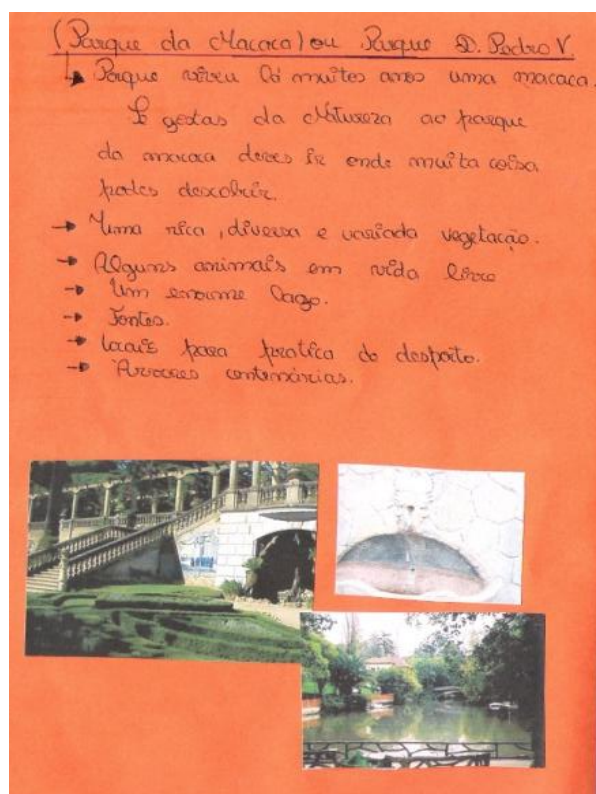 (Parque da Macaca) ou Parque D. Pedro V.
Porque viveu lá muitos anos uma macaca.
Se gostas da Natureza ao parque
da macaca deves ir onde muita coisa
podes descobrir.
→ Uma rica, diversa e variada vegetação.
→ Alguns animais em vida livre
→ Um enorme lago.
→ Fontes.
→ Locais para pratica do desporto.
→ Árvores centenárias.